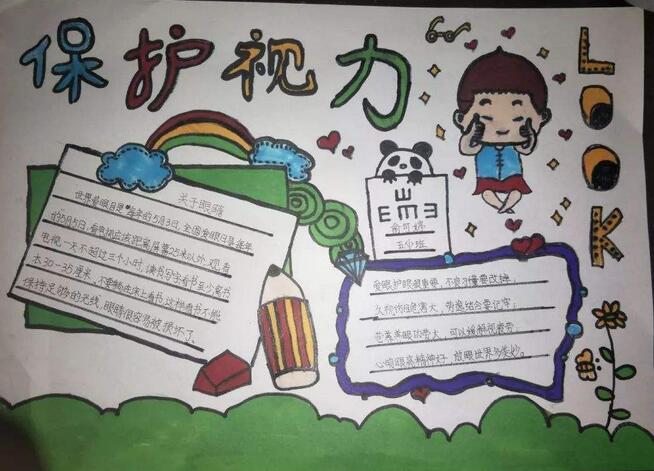 保护视力
LOOK
关于眼睛
世界爱眼日是每年的5月3日,全国爱眼日是每年
的5月5日,看电视应该距离屏幕25米以外,观看
电视一天不超过三个小时,读书写字看书至少离书
本30-35厘米,不要躺在床上看书,这样看书不能
保持足够的光线,眼睛很容易被损坏了。
E
E M E
俞可婷
五(1)班
爱眼护眼最重要,不良习惯要改掉,
久视伤目危害大,劳逸结合要记牢,
花草养眼功劳大,可以缓解视疲劳,
心明眼亮精神好,放眼世界多美妙。